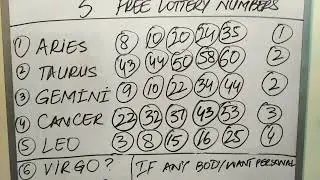 5 FREE LOTTERY NUMBERS
1 ARIES 8 10 20 24 35 1
2 TAURUS 43 44 50 58 60 2
3 GEMINI 9 10 22 34 44 2
4 CANCER 22 32 51 43 53 3
5 LEO 3 8 15 16 25 4
6 VIRGO? IF ANY BODY WANT PERSONAL